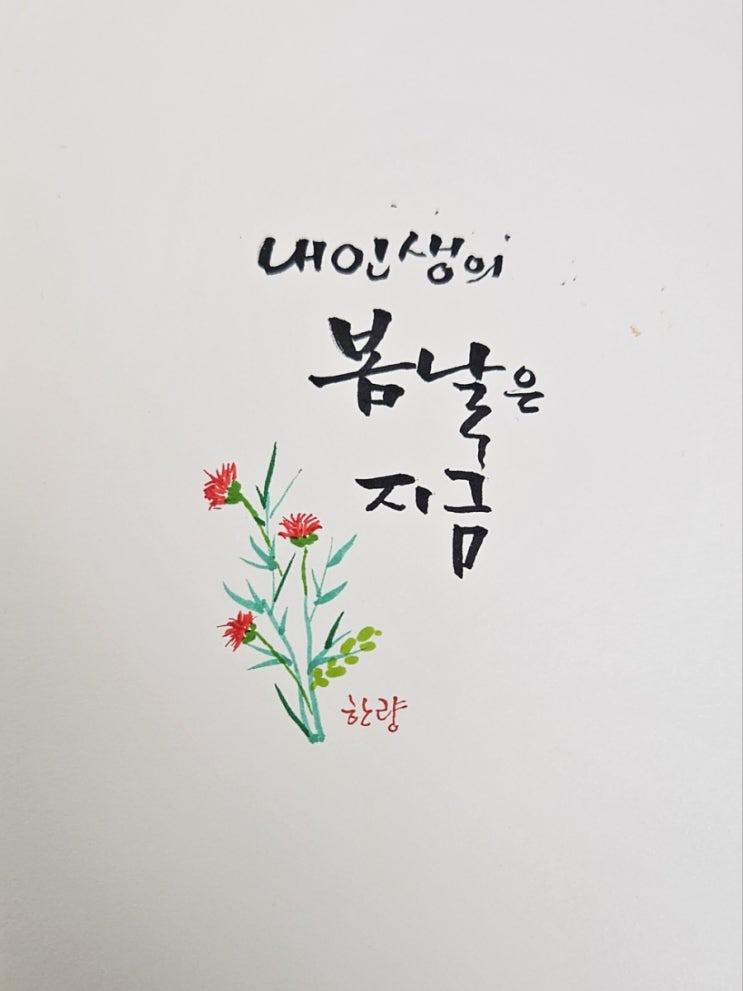 내인생의
봄날은
지금
한량